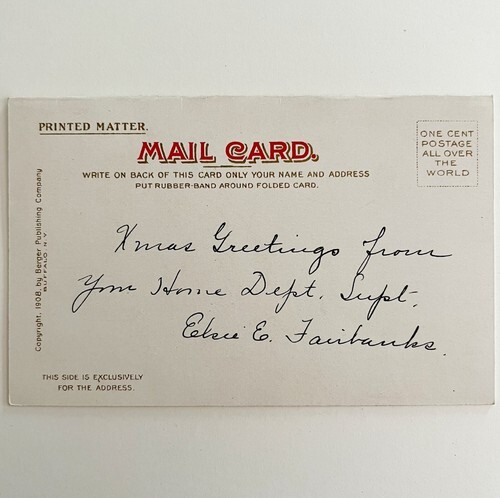 PRINTED MATTER.
MAIL CARD.
WRITE ON BACK OF THIS CARD ONLY YOUR NAME AND ADDRESS
PUT RUBBER-BAND AROUND FOLDED CARD.
ONE CENT
POSTAGE
ALL OVER
THE
WORLD
Copyright, 1908, by Berger Publishing Company
BUFFALO N.Y.
Xmas Greetings from
Your Home Dept. Supt.
Elsie E. Fairbanks.
THIS SIDE IS EXCLUSIVELY
FOR THE ADDRESS.